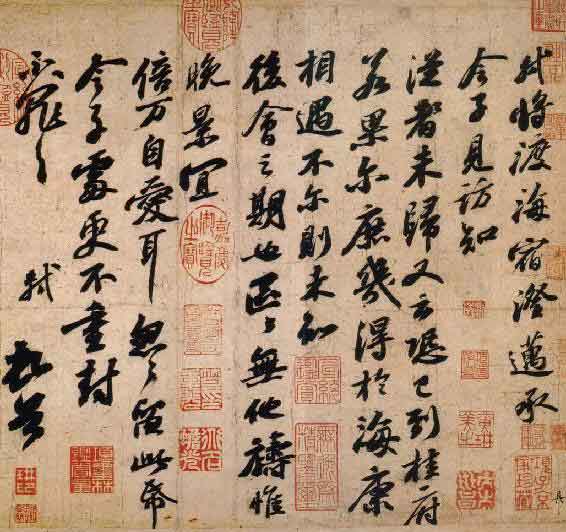 軾將渡海宿澄邁承
令子見訪知
從者未歸又云恐已到桂府
若果尔庶幾得於海康
相遇不尔則未知
後會之期也區々無他禱惟
晚景宜
倍万自愛耳忽々留此帋
令子處更不重封
不罪々
軾
頓首
嘉慶御覽之寶